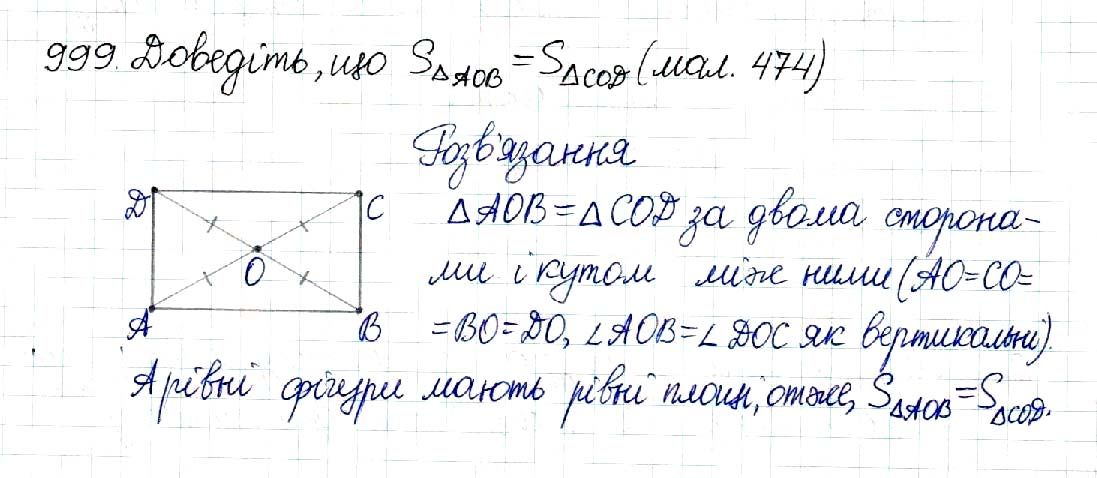 999. Доведіть, що S△AOB = S△COD (мал. 474)
Розв'язання
D
C
O
A
B
△AOB = △COD за двома сторона-
ми і кутом між ними (AO=CO=
=BO=DO, ∠AOB=∠DOC як вертикальні).
А рівні фігури мають рівні площі, отже, S△AOB = S△COD.